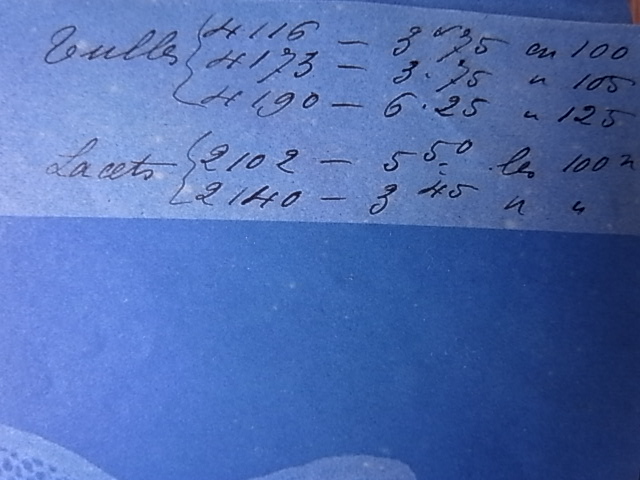 Tulles { 4116 — 3.75 en 100
4173 — 3.75 " 105
4190 — 6.25 " 125
Lacets { 2102 — 5.50 les 100 m
2140 — 3 45 " "